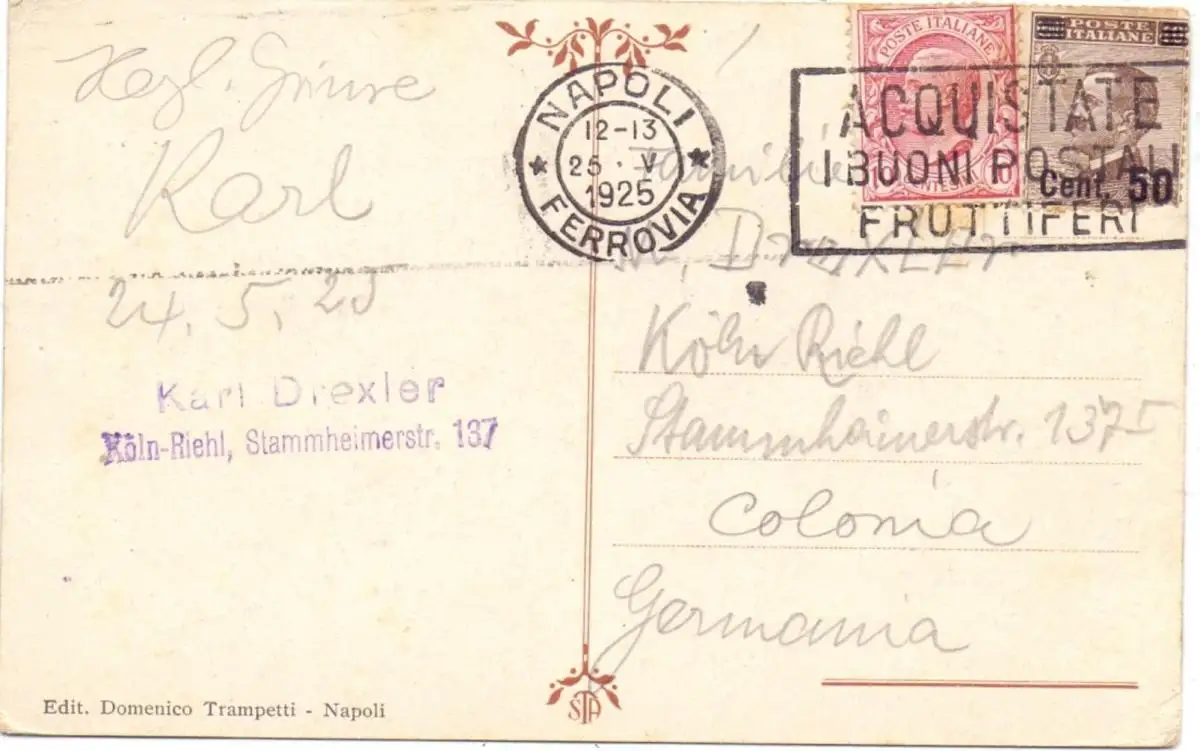 Herzl. Grüsse
Karl
24. 5. 25
Karl Drexler
Köln-Riehl, Stammheimerstr. 137
Edit. Domenico Trampetti - Napoli
NAPOLI
12-13
25 · V
1925
FERROVIA
POSTE ITALIANE
POSTE
ITALIANE
Cent. 50
ACQUISTATE
I BUONI POSTALI
FRUTTIFERI
Familie
DrEXLEr
Köln Riehl
Stammheimerstr. 137 I
Colonia
Germania